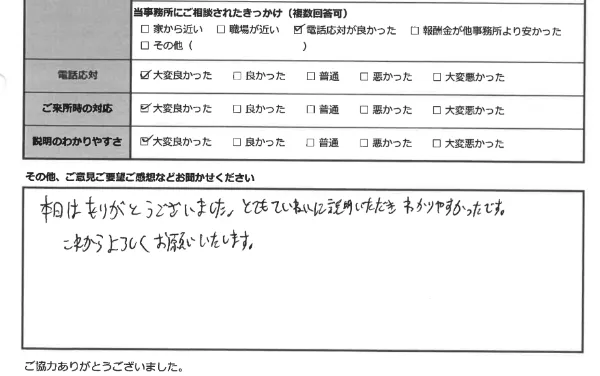 当事務所にご相談されたきっかけ（複数回答可）
□ 家から近い □ 職場が近い ☑ 電話応対が良かった □ 報酬金が他事務所より安かった
□ その他（ ）
電話応対 ☑ 大変良かった □ 良かった □ 普通 □ 悪かった □ 大変悪かった
ご来所時の対応 ☑ 大変良かった □ 良かった □ 普通 □ 悪かった □ 大変悪かった
説明のわかりやすさ ☑ 大変良かった □ 良かった □ 普通 □ 悪かった □ 大変悪かった
その他、ご意見ご要望ご感想などお聞かせください
本日はありがとうございました。とてもていねいに説明いただきわかりやすかったです。
これからよろしくお願いいたします。
ご協力ありがとうございました。